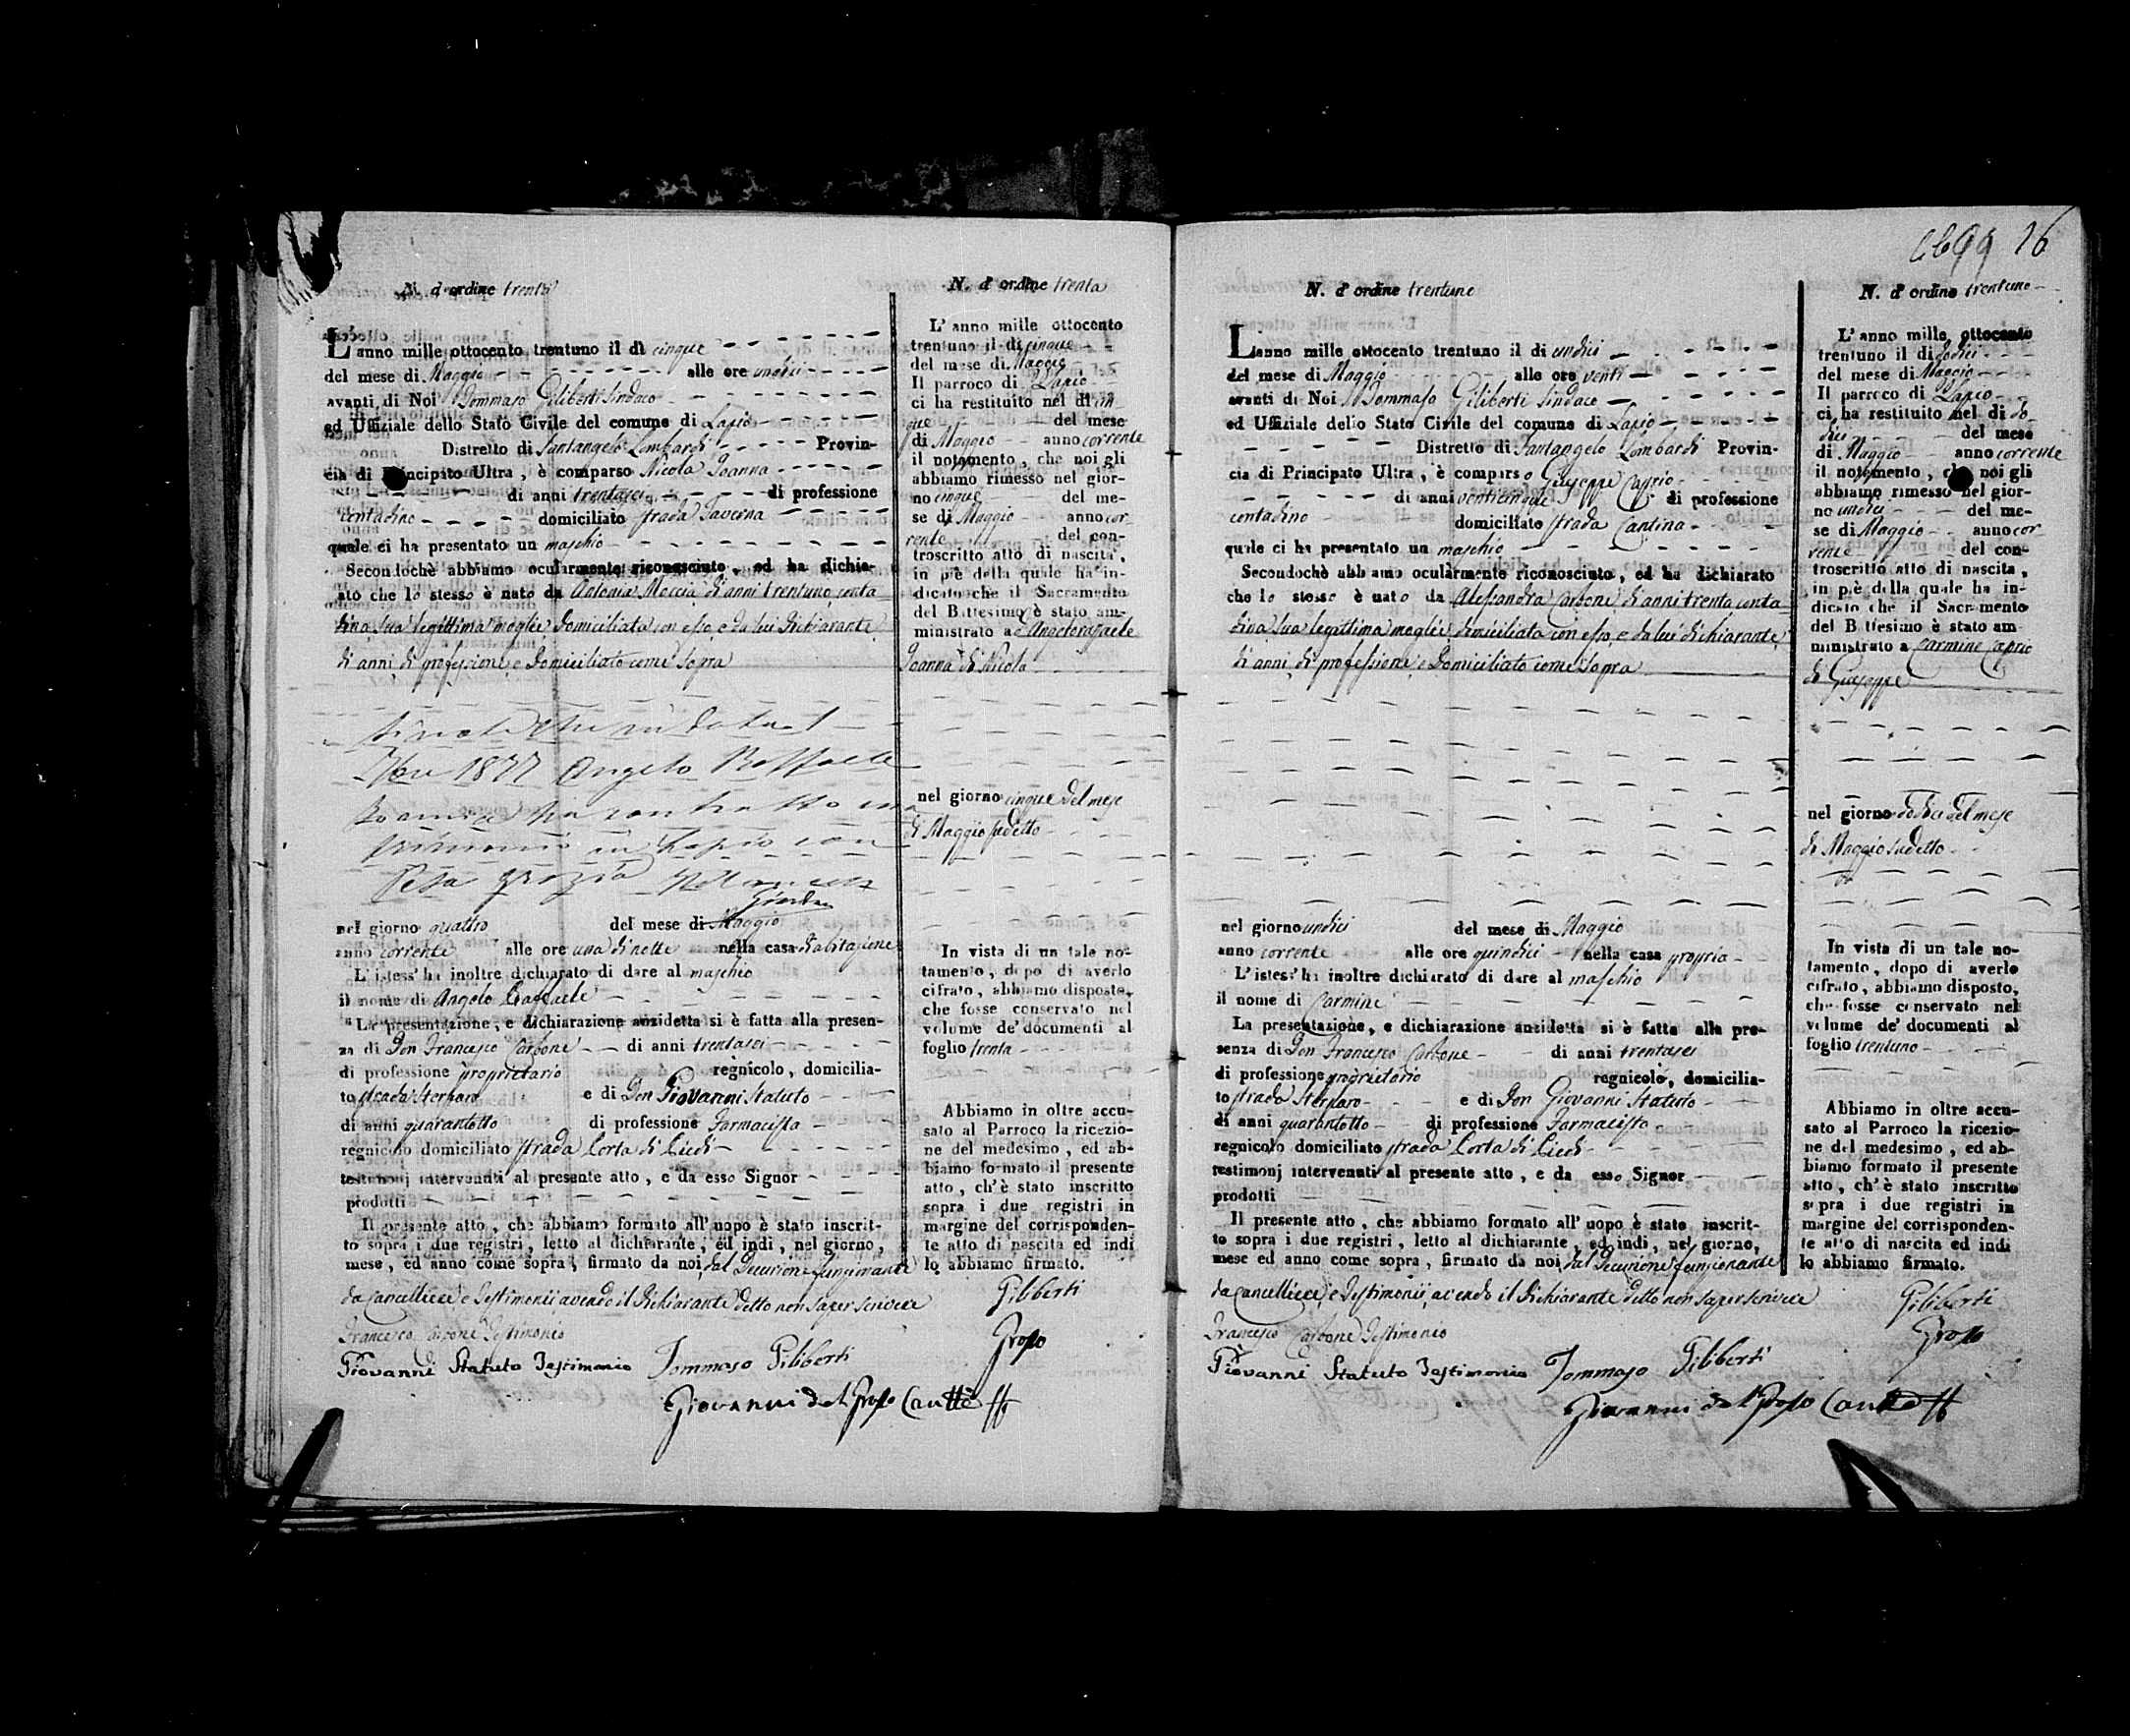 N. d'ordine trenta
L'anno mille ottocento trentuno il dì cinque
del mese di Maggio alle ore undici
avanti di Noi Tommaso Giliberti Sindaco
ed Uffiziale dello Stato Civile del comune di Lapio
Distretto di Santangelo Lombardi Provin-
cia di Principato Ultra, è comparso Nicola Joanna
di anni trentasei di professione
contadino domiciliato strada Taverna
quale ci ha presentato un maschio
Secondochè abbiamo ocularmente riconosciuto, ed ha dichia-
ato che lo stesso è nato da Antonia Moccia di anni trentuno conta
dina sua legittima moglie domiciliata con esso, e da lui dichiarante
di anni di professione e domiciliato come sopra
1877 Angelo Raffaele
Joanna ha contratto ma
trimonio in Lapio con
grazia
nel giorno quattro del mese di Maggio
anno corrente alle ore una di notte nella casa d'abitazione
L'istess' ha inoltre dichiarato di dare al maschio
il nome di Angelo Raffaele
La presentazione, e dichiarazione anzidetta si è fatta alla presen-
za di Don Francesco Carbone di anni trentasei
di professione proprietario regnicolo, domicilia-
to strada Sternaro e di Don Giovanni Statuto
di anni quarantotto di professione Farmacista
regnicolo domiciliato strada Porta di Piedi
testimonj intervenuti al presente atto, e da esso Signor
prodotti
Il presente atto, che abbiamo formato all'uopo è stato inscrit-
to sopra i due registri, letto al dichiarante, ed indi, nel giorno,
mese, ed anno come sopra, firmato da noi, dal Decurione funzionante
da Cancelliere e Testimonii avendo il dichiarante detto non saper scrivere
Francesco Carbone Testimonio
Giovanni Statuto Testimonio Tommaso Giliberti
Giovanni del Grosso
N. d'ordine trenta
L'anno mille ottocento
trentuno il dì cinque
del mese di Maggio
Il parroco di Lapio
ci ha restituito nel dì cin
que del mese
di Maggio anno corrente
il notamento, che noi gli
abbiamo rimesso nel gior-
no cinque del me-
se di Maggio anno cor
rente del con-
troscritto atto di nascita,
in piè della quale ha in-
dicato che il Sacramento
del Battesimo è stato am-
ministrato a Angeloraffaele
Joanna di Nicola
nel giorno cinque del mese
di Maggio sudetto
In vista di un tale no-
tamento, dopo di averlo
cifrato, abbiamo disposto,
che fosse conservato nel
volume de' documenti al
foglio trenta
Abbiamo in oltre accu-
sato al Parroco la ricezio-
ne del medesimo, ed ab-
biamo formato il presente
atto, ch'è stato inscritto
sopra i due registri in
margine del corrisponden-
te atto di nascita ed indi
lo abbiamo firmato.
Giliberti
Grosso
16
N. d'ordine trentuno
L'anno mille ottocento trentuno il di undici
del mese di Maggio alle ore venti
avanti di Noi Tommaso Giliberti Sindaco
ed Uffiziale dello Stato Civile del comune di Lapio
Distretto di Santangelo Lombardi Provin-
cia di Principato Ultra, è comparso Giuseppe Caprio
di anni venticinque di professione
contadino domiciliato strada Cantina
quale ci ha presentato un maschio
Secondochè abbiamo ocularmente riconosciuto, ed ha dichiarato
che lo stesso è nato da Alessandra Carbone di anni trenta conta
dina sua legittima moglie domiciliata con esso, e da lui dichiarante
di anni di professione e domiciliato come sopra
nel giorno undici del mese di Maggio
anno corrente alle ore quindici nella casa propria
L'istess' ha inoltre dichiarato di dare al maschio
il nome di Carmine
La presentazione, e dichiarazione anzidetta si è fatta alla pre-
senza di Don Francesco Carbone di anni trentasei
di professione proprietario regnicolo, domicilia-
to strada Sternaro e di Don Giovanni Statuto
di anni quarantotto di professione Farmacista
regnicolo domiciliato strada Porta di Piedi
testimonj intervenuti al presente atto, e da esso Signor
prodotti
Il presente atto, che abbiamo formato all'uopo è stato inscrit-
to sopra i due registri, letto al dichiarante, ed indi, nel giorno,
mese ed anno come sopra, firmato da noi, dal Decurione funzionante
da Cancelliere, e Testimonii, avendo il dichiarante detto non saper scrivere
Francesco Carbone Testimonio
Giovanni Statuto Testimonio Tommaso Giliberti
Giovanni del Grosso
N. d'ordine trentuno
L'anno mille ottocento
trentuno il di dodici
del mese di Maggio
Il parroco di Lapio
ci ha restituito nel di do
dici del mese
di Maggio anno corrente
il notamento, che noi gli
abbiamo rimesso nel gior-
no undici del me-
se di Maggio anno cor
rente del con-
troscritto atto di nascita,
in piè della quale ha in-
dicato che il Sacramento
del Battesimo è stato am
ministrato a Carmine Caprio
di Giuseppe
nel giorno dodici del mese
di Maggio sudetto
In vista di un tale no-
tamento, dopo di averlo
cifrato, abbiamo disposto,
che fosse conservato nel
volume de' documenti al
foglio trentuno
Abbiamo in oltre accu-
sato al Parroco la ricezio-
ne del medesimo, ed ab-
biamo formato il presente
atto, ch'è stato inscritto
sopra i due registri in
margine del corrisponden-
te atto di nascita ed indi
lo abbiamo firmato.
Giliberti
Grosso